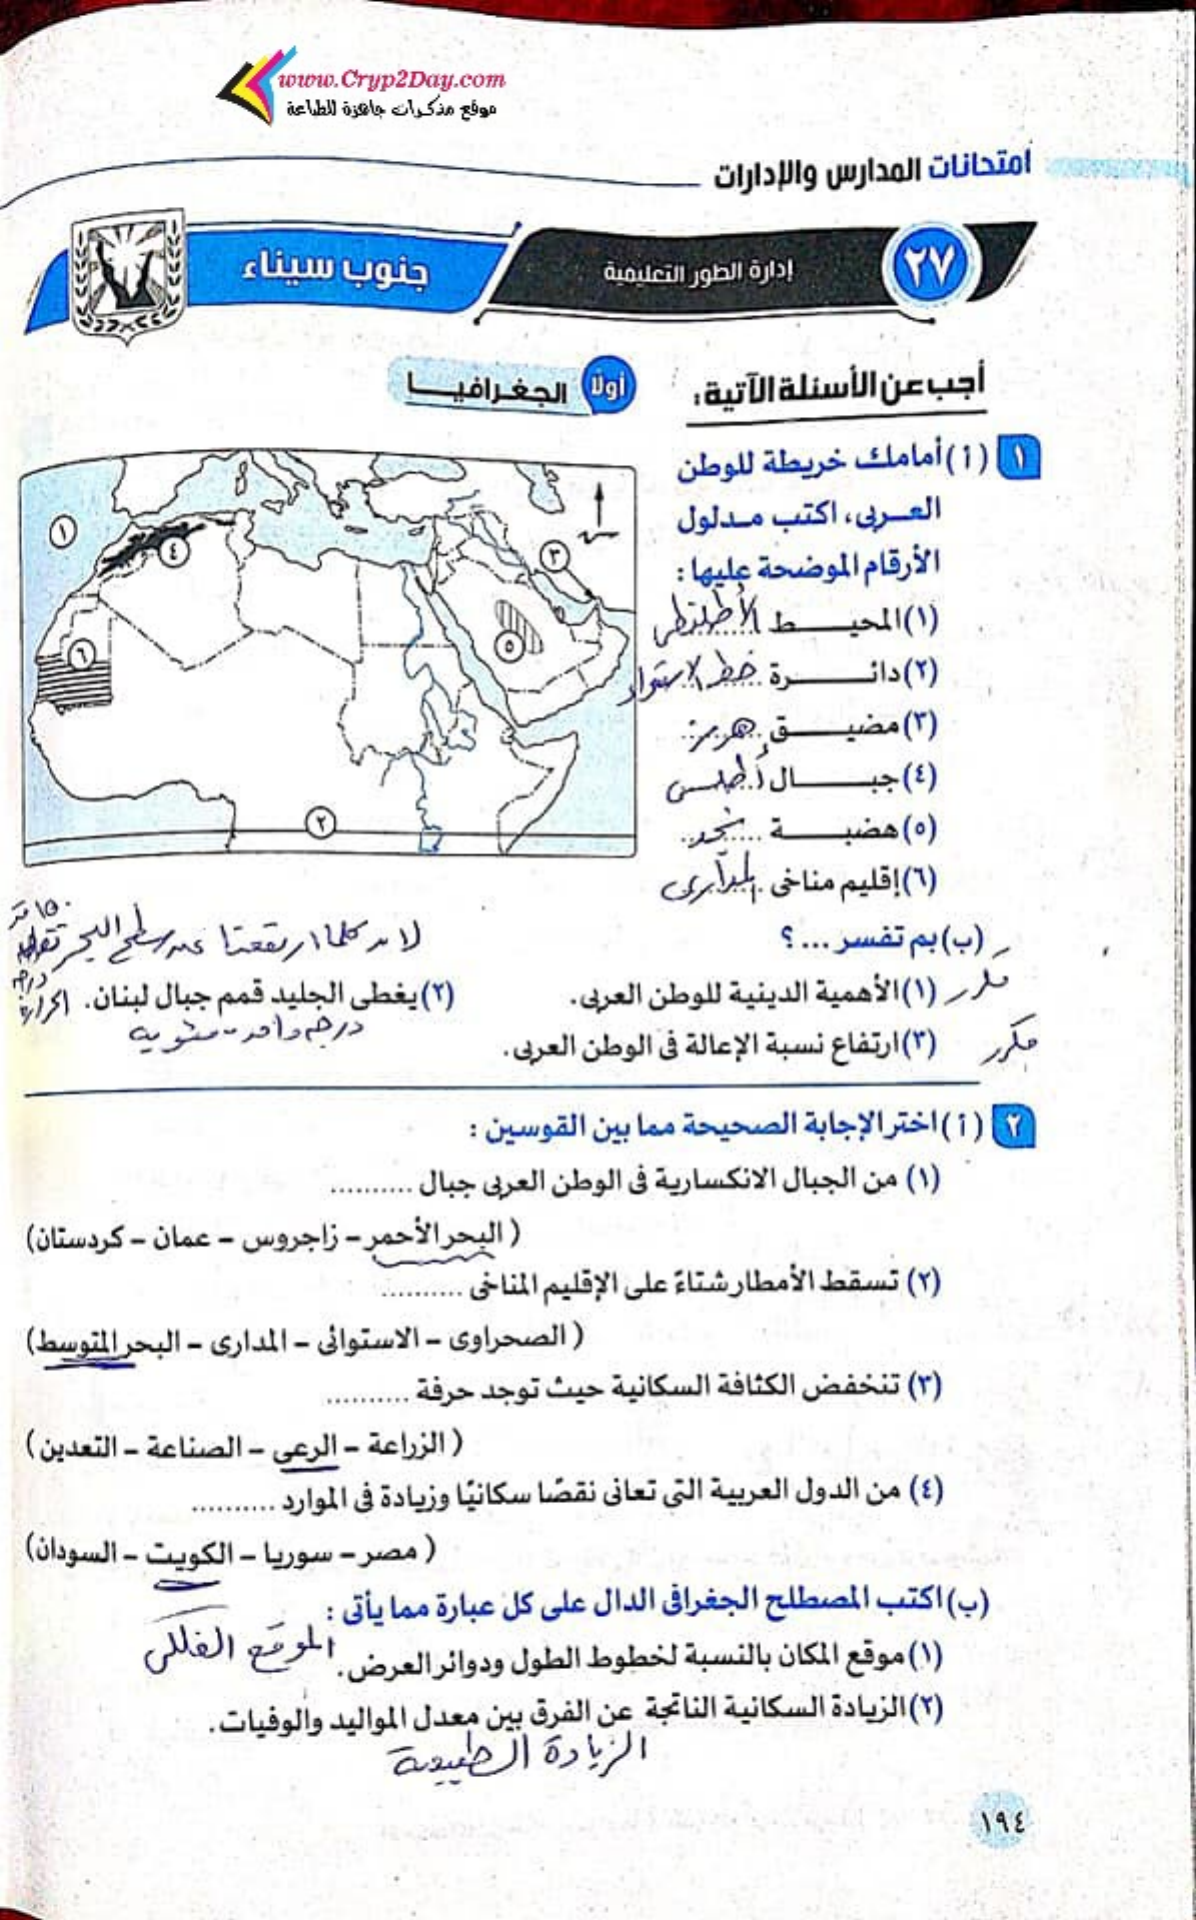 www.Cryp2Day.com
موقع مذكرات جاهزة للطباعة
امتحانات المدارس والإدارات
٢٧
إدارة الطور التعليمية
جنوب سيناء
أجب عن الأسئلة الآتية:
أولًا الجغرافيا
١ (أ) أمامك خريطة للوطن
العربى، اكتب مدلول
الأرقام الموضحة عليها:
(١) المحيط الأطلنطى
(٢) دائرة خط الاستواء
(٣) مضيق هرمز
(٤) جبال أطلس
(٥) هضبة نجد
(٦) إقليم مناخى المدارى
١
٢
٣
٤
٥
٦
(ب) بم تفسر ...؟
لان كلما ارتفعنا عن سطح البحر ١٥٠ متر
(١) الأهمية الدينية للوطن العربى.
مكرر
(٢) يغطى الجليد قمم جبال لبنان.
درجة الحرارة
درجة واحدة مئوية
(٣) ارتفاع نسبة الإعالة فى الوطن العربى.
مكرر
٢ (أ) اختر الإجابة الصحيحة مما بين القوسين:
(١) من الجبال الانكسارية فى الوطن العربى جبال ..........
(البحر الأحمر - زاجروس - عمان - كردستان)
(٢) تسقط الأمطار شتاءً على الإقليم المناخى ..........
(الصحراوى - الاستوائى - المدارى - البحر المتوسط)
(٣) تنخفض الكثافة السكانية حيث توجد حرفة ..........
(الزراعة - الرعى - الصناعة - التعدين)
(٤) من الدول العربية التى تعانى نقصًا سكانيًا وزيادة فى الموارد ..........
(مصر - سوريا - الكويت - السودان)
(ب) اكتب المصطلح الجغرافى الدال على كل عبارة مما يأتى:
(١) موقع المكان بالنسبة لخطوط الطول ودوائر العرض. الموقع الفلكى
(٢) الزيادة السكانية الناتجة عن الفرق بين معدل المواليد والوفيات.
الزيادة الطبيعية
١٩٤